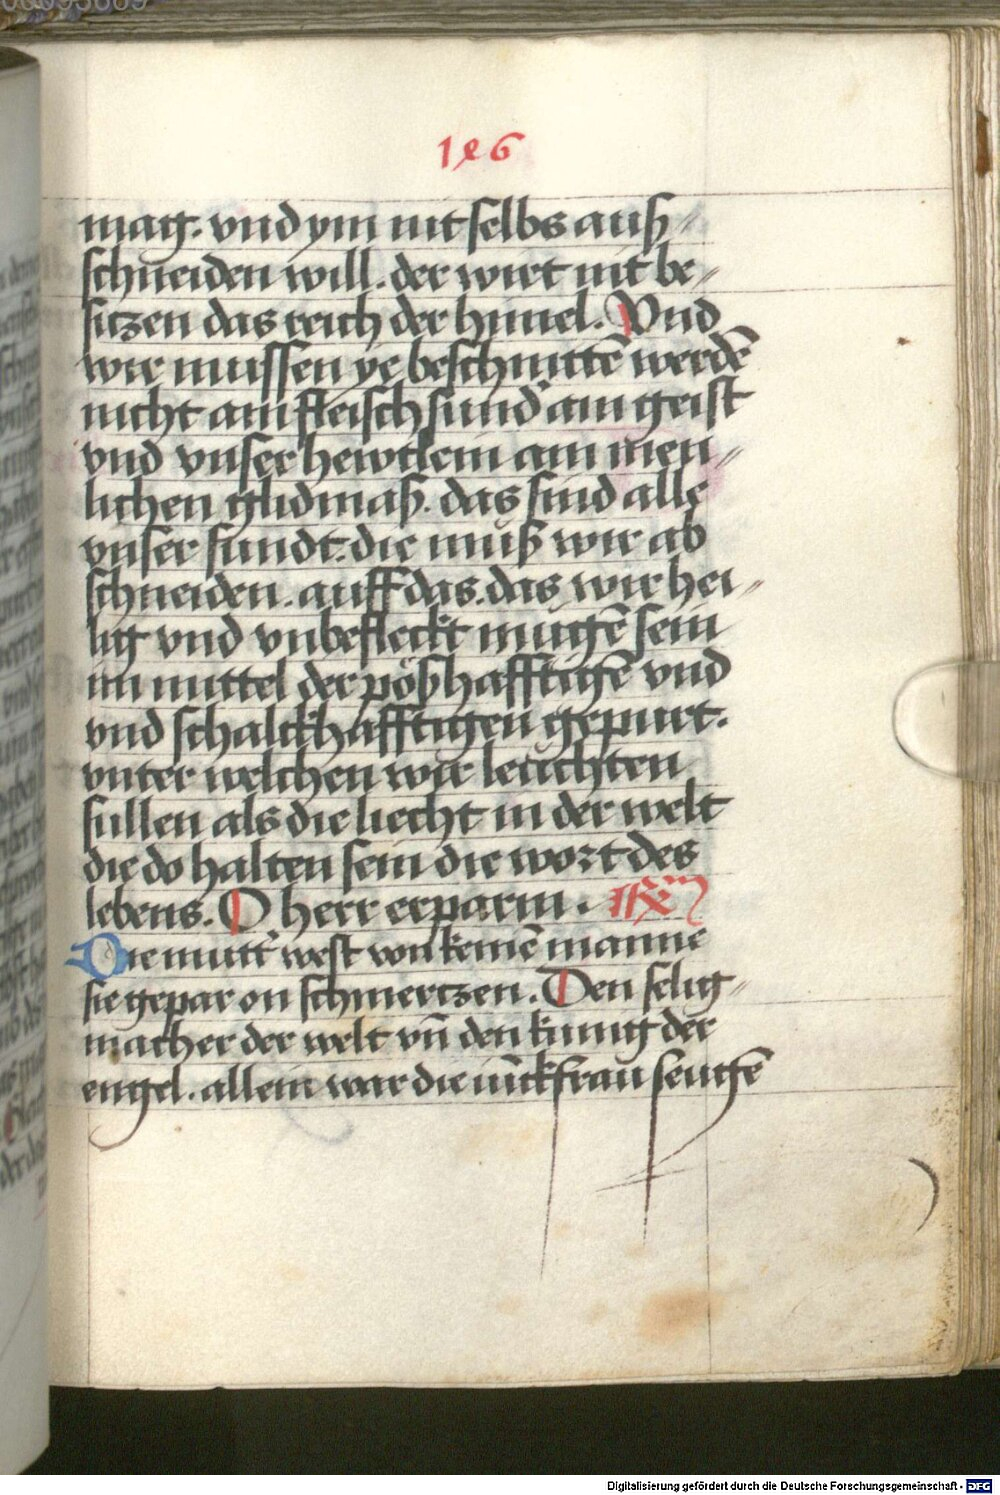 186
mag. vnd ym nit selbs auß
schneiden will. der wirt nit be-
sitzen das reich der himel. Vnd
wir mussen ye beschnittē werdē
nicht am fleisch sund' am geist
vnd vnser hewtlein am men-
lichen glidmaß. das sind alle
vnser sundt. die muß wir ab
schneiden. auff das. das wir hei-
lig vnd vnbefleckt mugē sein
im mittel der pößhafftigē vnd
vnd schalckhafftigen gepurt.
vnter welchen wir leuchten
sullen als die liecht in der welt
die do halten sein die wort des
lebens. O herr erparm.
Die mutt' west von keinē manne
sie gepar on schmertzen. Den selig-
macher der welt vn̄ den kunig der
engel. allein war die iūckfrau seugē
Digitalisierung gefördert durch die Deutsche Forschungsgemeinschaft - DFG